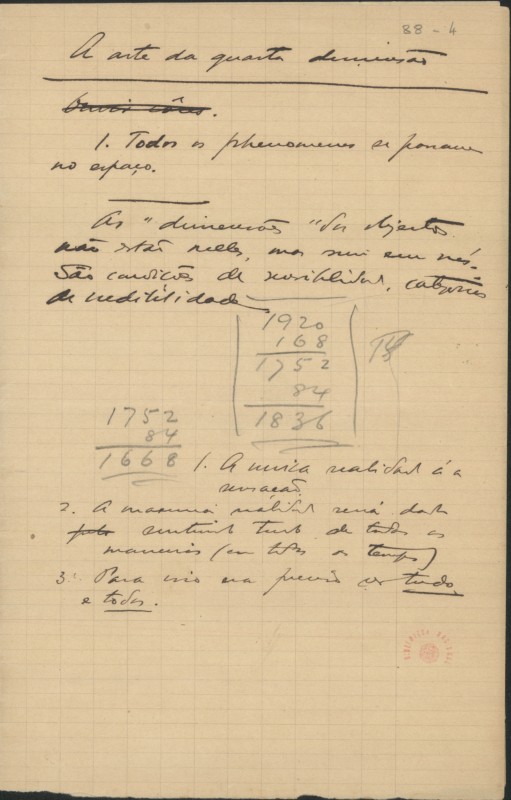 88 - 4
A arte da quarta dimensão
1. Todos os phenomenos se passam
no espaço.
As "dimensões" dos objectos
não estão nelles, mas sim em nós.
São condições de sensibilidade, categorias
de
1920
168
1752
84
1836
1752
84
1668
1. A unica realidade é a
sensação.
2. A maxima realidade será dada
sentindo tudo de todas as
maneiras (em todos os tempos)
3. Para isso era preciso ser tudo
e todos.
BIBLIOTECA NACIONAL